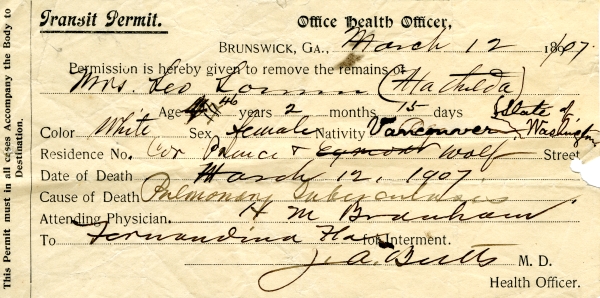 This Permit must in all cases Accompany the Body to Destination.
Transit Permit. Office Health Officer,
BRUNSWICK, GA., March 12 1907.
Permission is hereby given to remove the remains of
Mrs. Leo (Mathilda)
Age 46 years 2 months 15 days
Color White Sex Female Nativity Vancouver, State of Washington
Residence No. Cor Prince & Wolf Street
Date of Death March 12, 1907.
Cause of Death Pulmonary Tuberculosis
Attending Physician. H M Branham
To Fernandina Fla for Interment.
J. A. Butts M. D.
Health Officer.